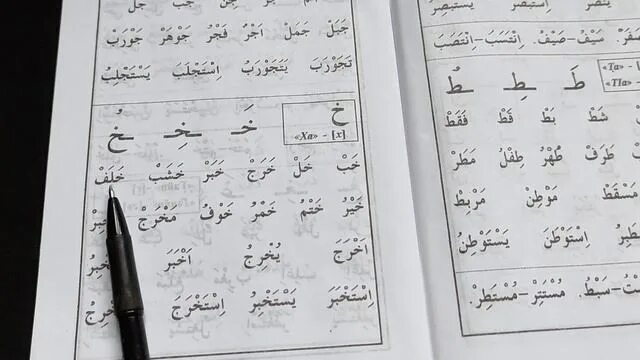 جَبَلْ جَمَلْ اَجْرُ فَجْرُ جَوْهَرْ جَوْرَبْ
تَجَوْرَبَ يَتَجَوْرَبُ اِسْتَجْلَبَ يَسْتَجْلِبُ
خ
«Xa» - [x]
خَـ ـخِـ ـخُ
خَبْ خَلْ خَرَجَ خَبَرْ خَشَبْ خَلَفْ
خَيْرُ خَتْمُ خَمْرُ خَوْفُ مَخْرَجْ
اَخْرَجَ يُخْرِجُ اَخْبَرَ
اِسْتَخْبَرَ يَسْتَخْبِرُ اِسْتَخْرَجَ
يَنْصُرُ اِسْتَبْصَرَ يَسْتَبْصِرُ
سَفَرْ. سَيْفُ-صَيْفُ. اِنْتَسَبَ-اِنْتَصَبَ
«Ta» -
طَ ـطِـ ـطُ
شَطْ بَطْ قَطْ فَقَطْ
طَرَفْ طُهْرُ طِفْلُ مَطَرْ
مَسْقَطْ مَوْطِنْ مَرْبِطْ
اِسْتَوْطَنَ يَسْتَوْطِنُ
سَبْطُ. مُسْتَتِرْ-مُسْتَطِرْ.